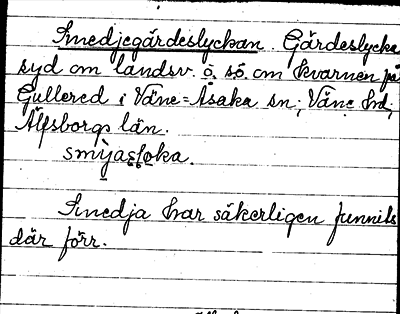 Smedjegärdeslyckan. Gärdeslycka
syd om landsv. o. sö. om kvarnen på
Gullered i Väne-Åsaka sn; Väne hd;
Älfsborgs län.
Smedja har säkerligen funnits
där förr.